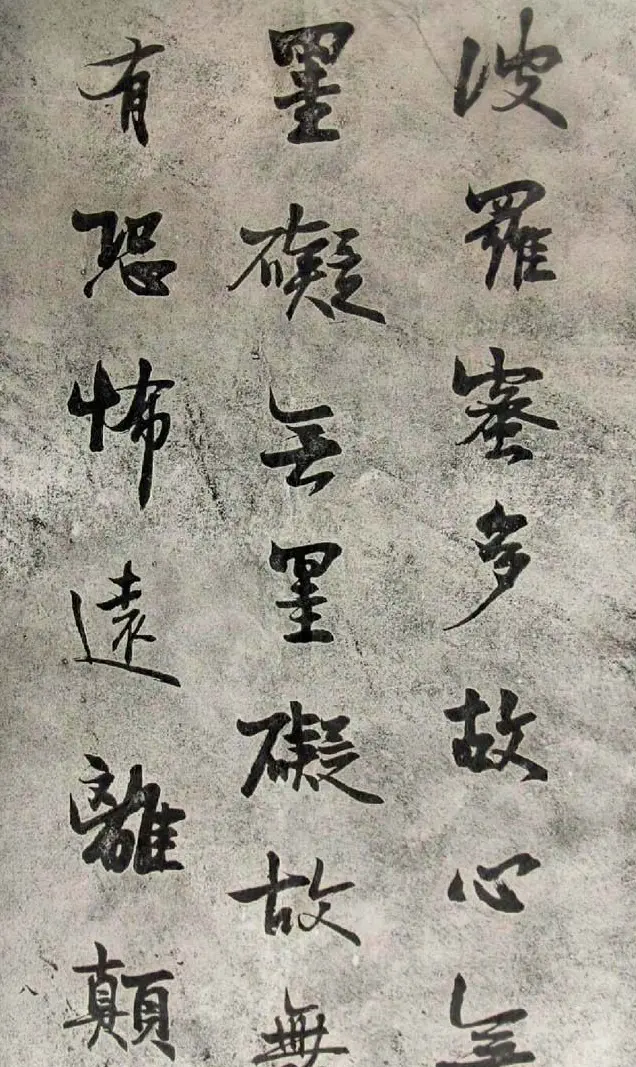 波羅蜜多故心無
罣礙無罣礙故無
有恐怖遠離顛